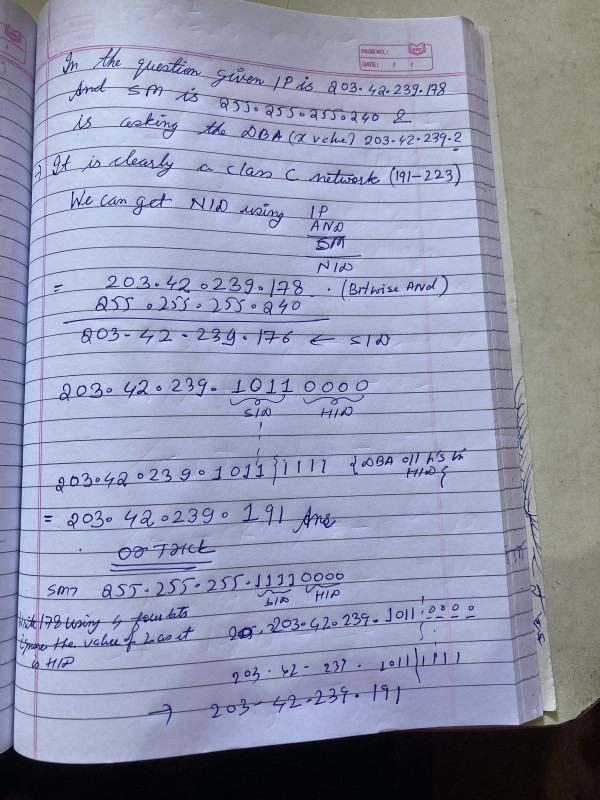 PAGE NO.:
DATE: / /
In the question given IP is 203.42.239.178
And SM is 255.255.255.240 &
is asking the DBA (x value) 203.42.239.?
→ It is clearly a class C network (191-223)
We can get NID using IP
AND
SM
NID
= 203.42.239.178 . (Bitwise AND)
255.255.255.240
203-42.239.176 ← SID
203.42.239. 1011 0000
SID HID
203.42.239.1011 1111 {DBA all 1's in
HID}
= 203.42.239.191 Ans
OR TRICK
SM→ 255.255.255.11110000
SID HID
178 using 4 four bits
the value of as it
is HID
203.42.239.1011 0000
203.42-239.1011 1111
→ 203-42.239.191